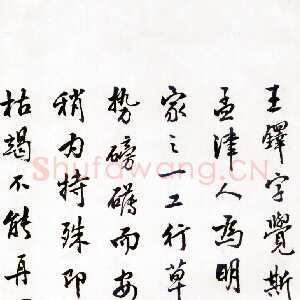 王鐸字覺斯
孟津人爲明
家之一工行草
势磅礴而安
稍为特殊印
枯竭不能再
Shufawang.CN